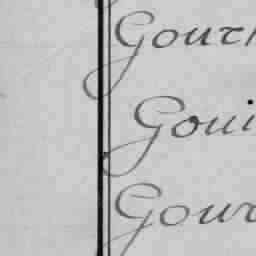 Gour
Goui
Gour